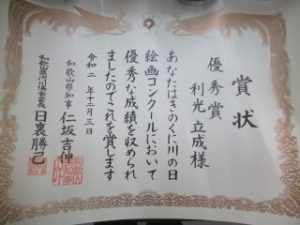 賞状
優秀賞
利光立成様
あなたはきのくに川の日
絵画コンクールにおいて
優秀な成績を収められ
ましたのでこれを賞します
令和二年十二月三日
和歌山県知事 仁坂吉伸
和歌山県河川協会会長 日裏勝己